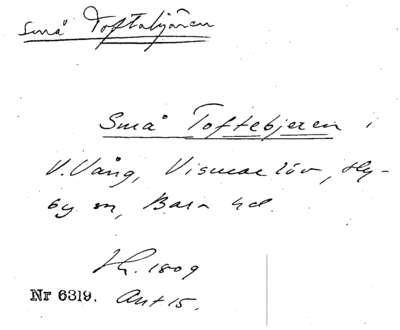 Små Toftabjären
Små Toftebjeren i
V. Vång, Vismarlöv, Hy-
by sn, Bara hd.
Hs. 1809
Nr 6319. Akt 15.